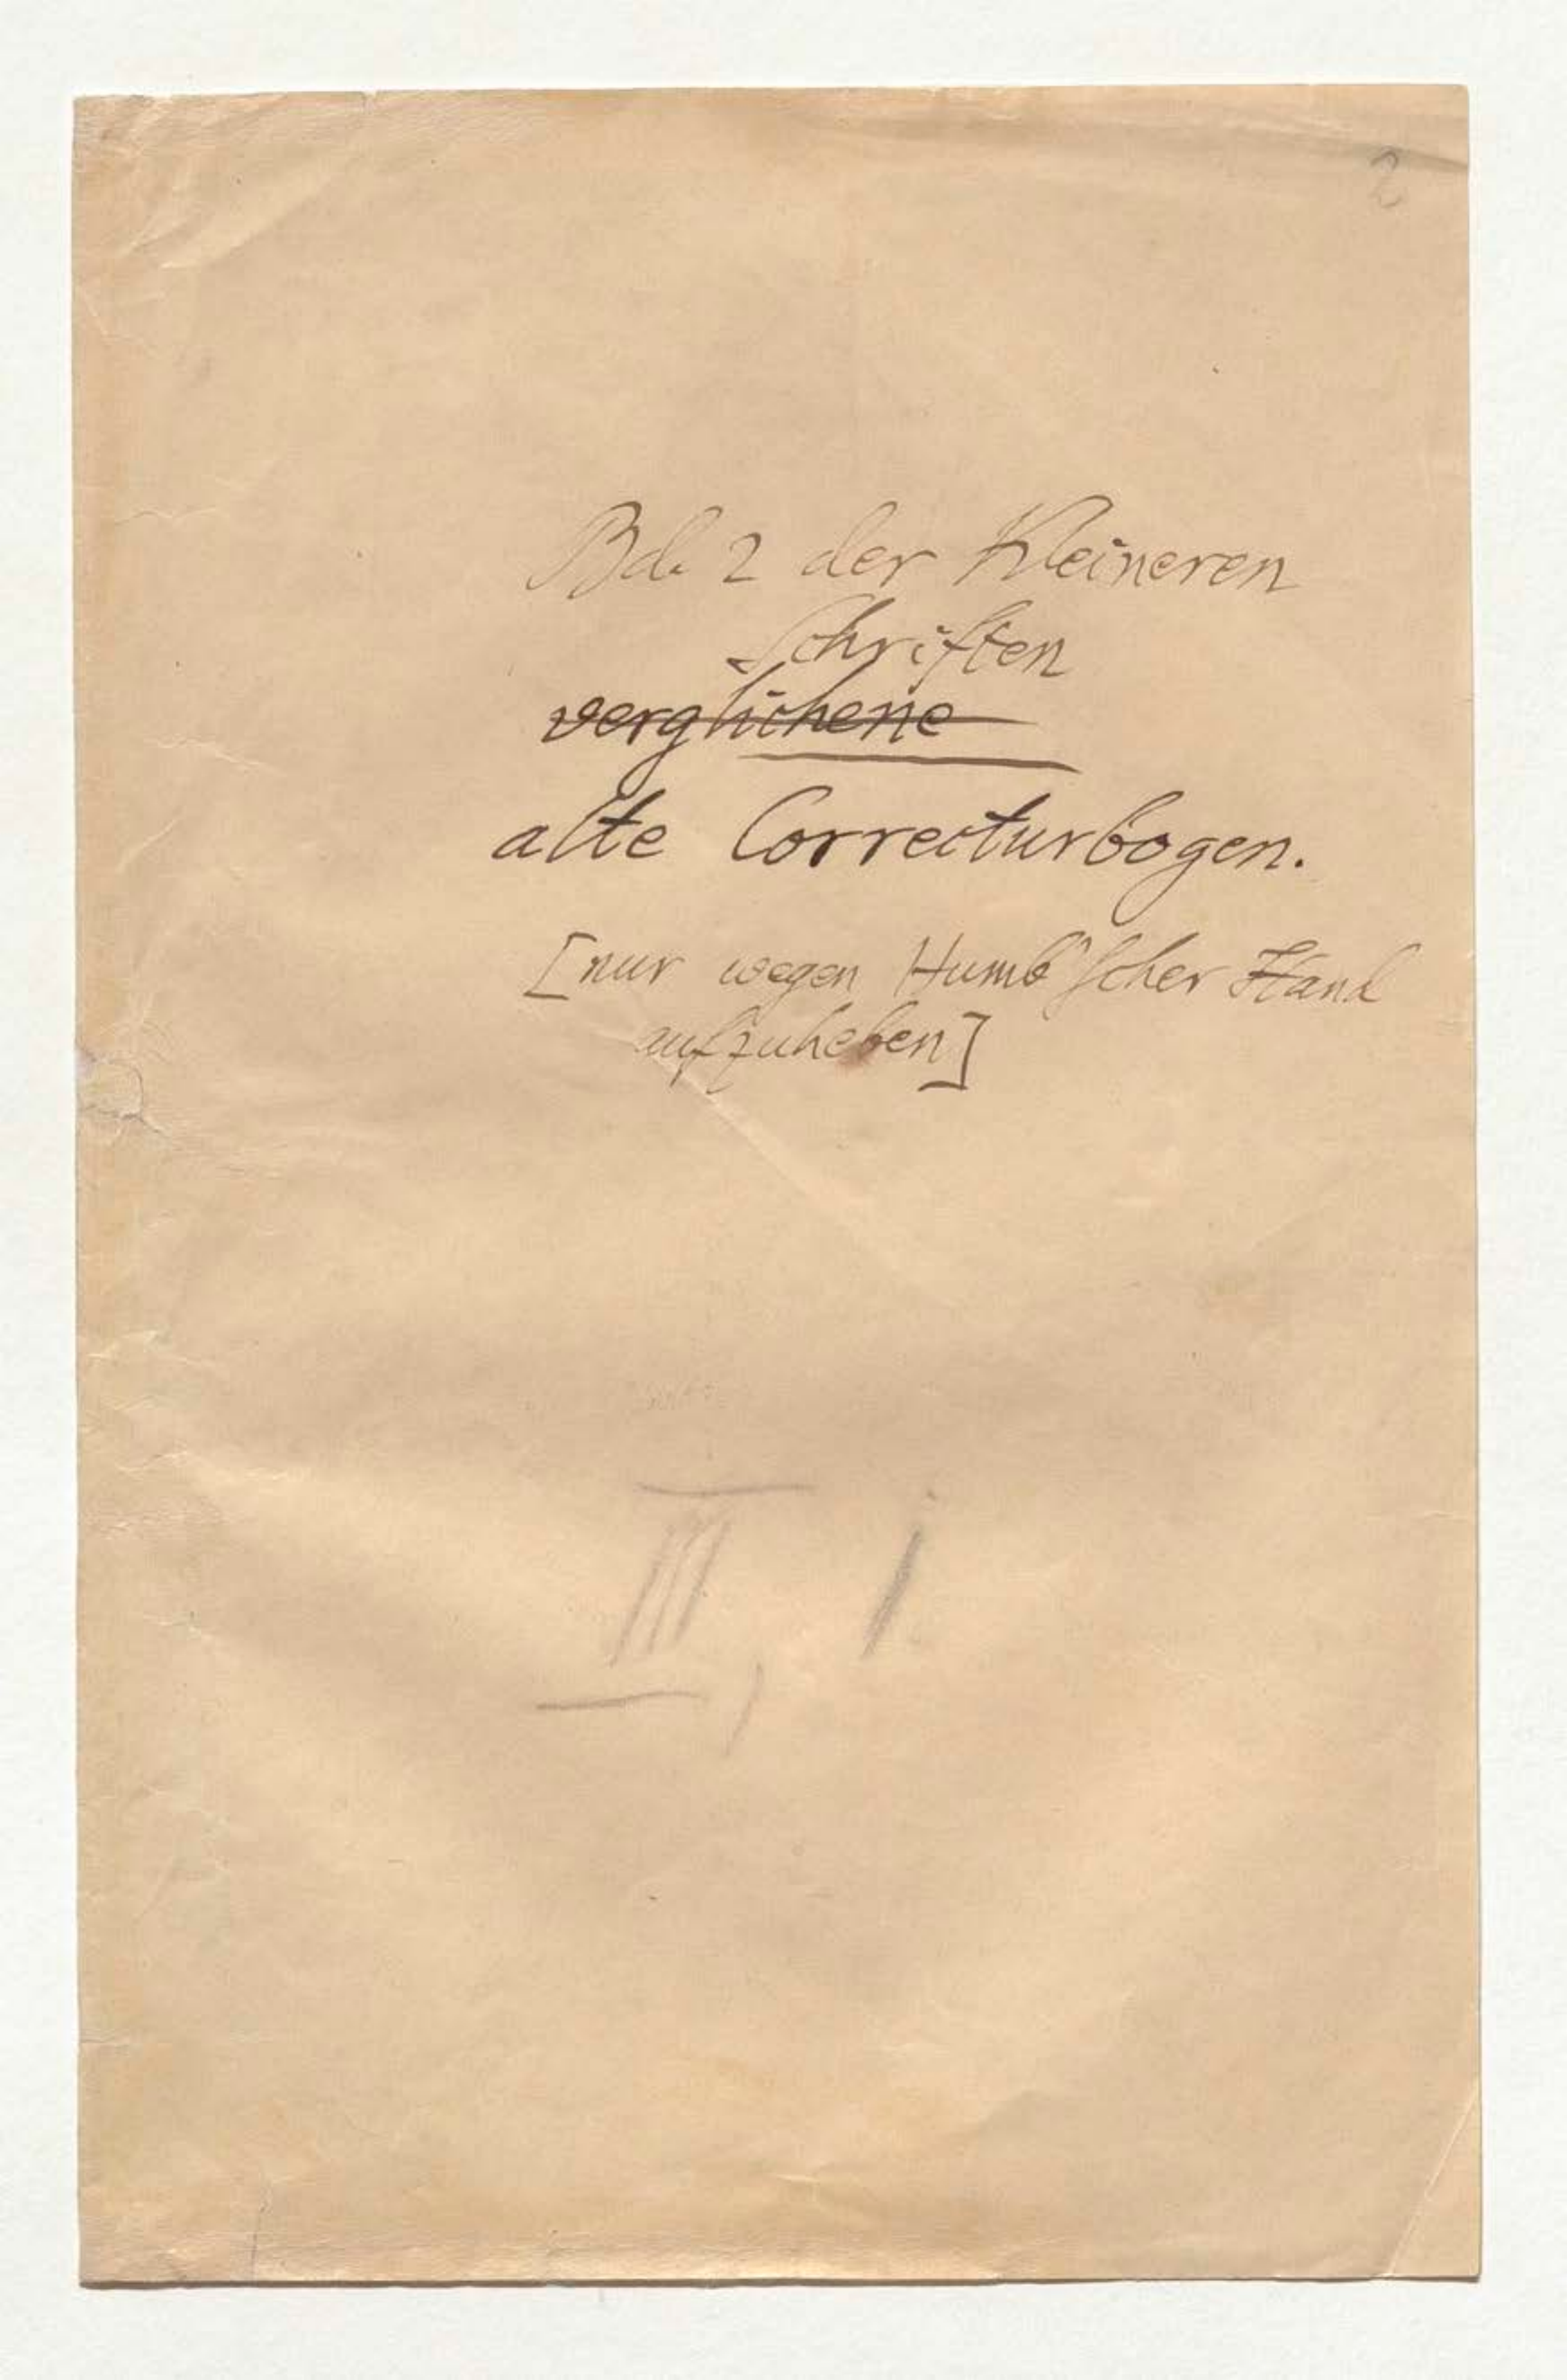 2
Bd. 2 der Kleineren
Schriften
verglichene
alte Correcturbogen.
[nur wegen Humb'scher Hand
aufzuheben]
III, 1